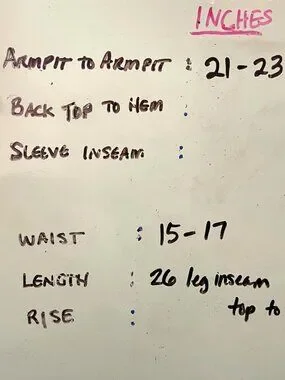 INCHES
ARMPIT TO ARMPIT : 21-23
BACK TOP TO HEM :
SLEEVE INSEAM :
WAIST : 15-17
LENGTH : 26 leg inseam
top to
RISE :